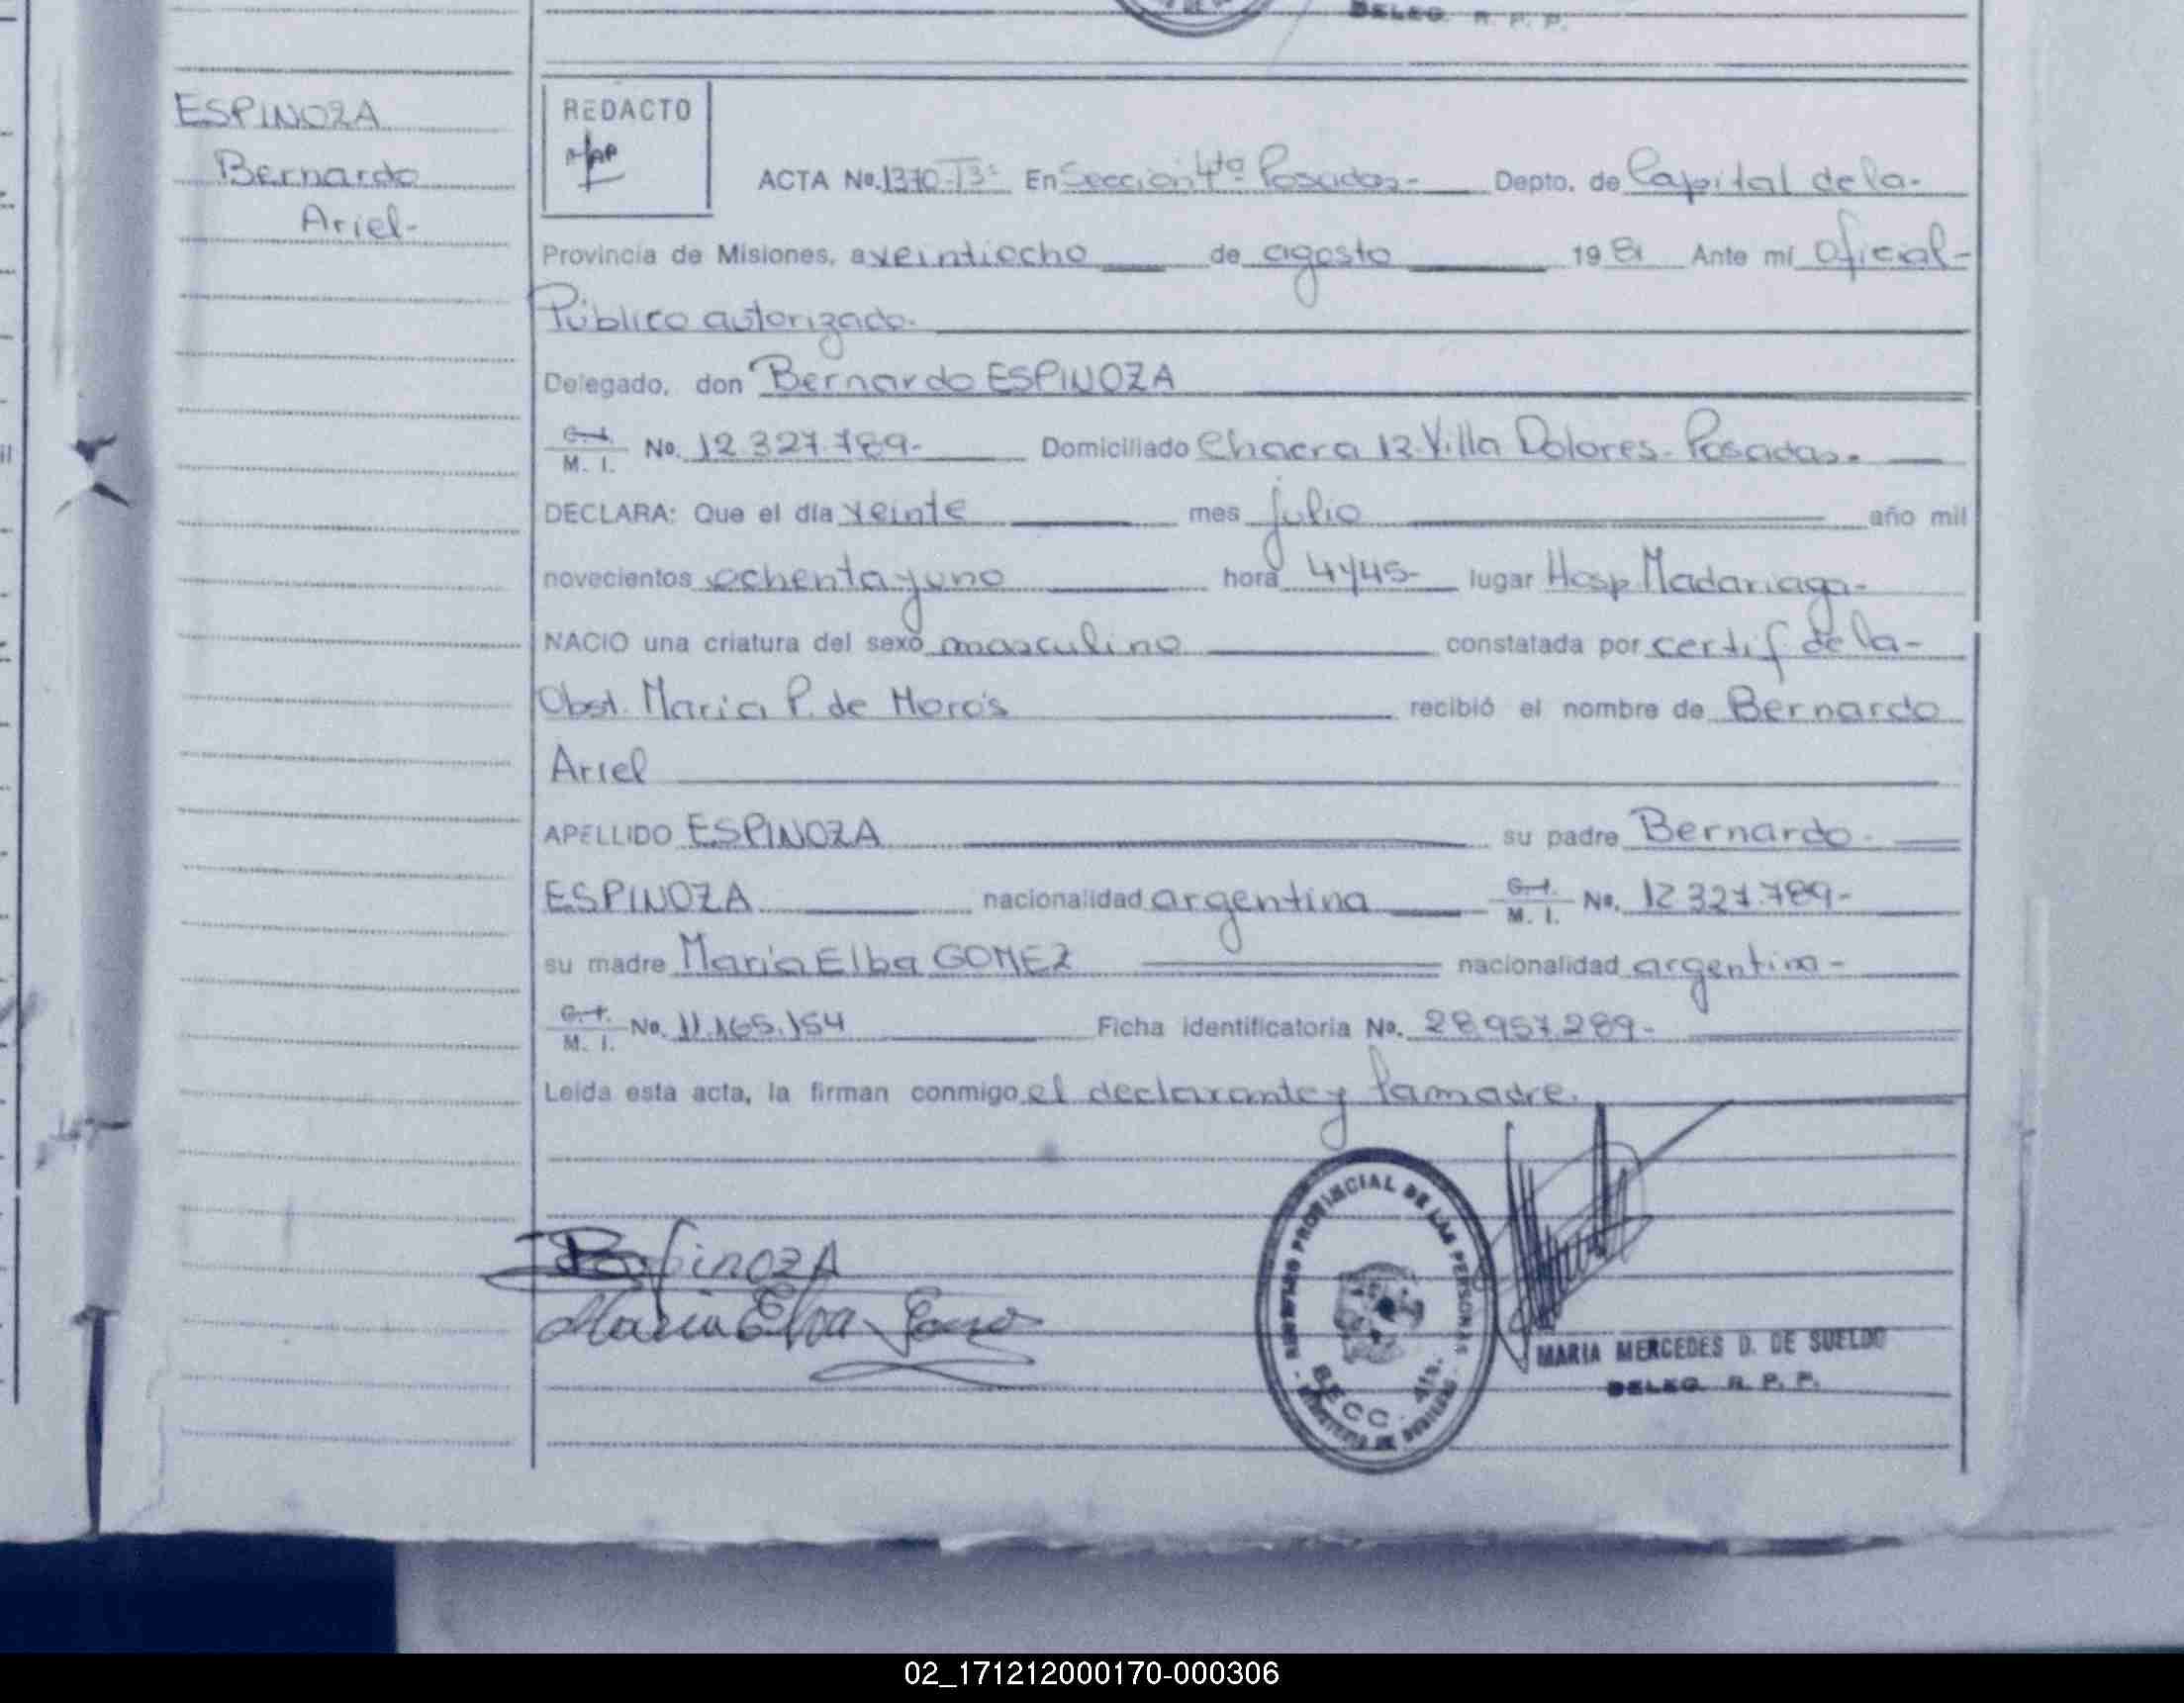 DELEG. R. P. P.
ESPINOZA
Bernardo
Ariel-
REDACTO
ACTA No. 1370-T3º En Sección 4ta Posadas- Depto. de Capital de la-
Provincia de Misiones, a veintiocho de agosto 1981 Ante mí Oficial-
Público autorizado.
Delegado, don Bernardo ESPINOZA
C. I. M. I. No. 12.327.789- Domiciliado Chacra 12-Villa Dolores-Posadas.
DECLARA: Que el día veinte mes julio año mil
novecientos ochenta y uno hora 4y45- lugar Hosp. Madariaga-
NACIO una criatura del sexo masculino constatada por certif de la-
Obst. María P. de recibió el nombre de Bernardo
Ariel
APELLIDO ESPINOZA su padre Bernardo-
ESPINOZA nacionalidad argentina C. I. M. I. No. 12.327.789-
su madre María Elba GOMEZ nacionalidad argentina-
C. I. M. I. No. 11.165.154 Ficha identificatoria No. 28.957.289-
Leída esta acta, la firman conmigo el declarante y la madre.
EspinozA
Maria Elva
REGISTRO PROVINCIAL DE LAS PERSONAS
SECC. 4ta.
MARIA MERCEDES D. DE SUELDO
DELEG. R. P. P.
02_171212000170-000306